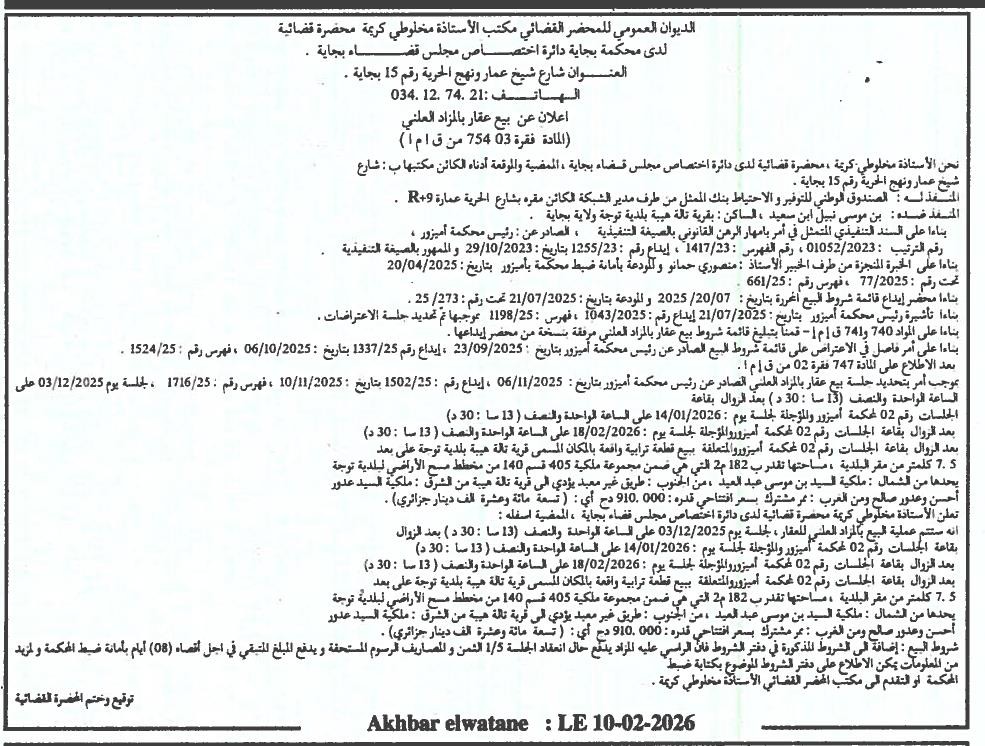 الديوان العمومي للمحضر القضائي مكتب الأستاذة مخلوطي كريمة محضرة قضائية
لدى محكمة بجاية دائرة اختصاص مجلس قضاء بجاية .
العنوان شارع شيخ عمار ونهج الحرية رقم 15 بجاية .
الهاتف :21 .74 .12 .034
اعلان عن بيع عقار بالمزاد العلني
(المادة فقرة 03 754 من ق ا م ا )
نحن الأستاذة مخلوطي كريمة ، محضرة قضائية لدى دائرة اختصاص مجلس قضاء بجاية ، الممضية والموقعة أدناه الكائن مكتبها ب : شارع
شيخ عمار ونهج الحرية رقم 15 بجاية .
المنفذ له : الصندوق الوطني للتوفير و الاحتياط بنك الممثل من طرف مدير الشبكة الكائن مقره بشارع الحرية عمارة R+9 .
المنفذ ضده : بن موسى نبيل ابن سعيد ، الساكن : بقرية تالة هيبة بلدية توجة ولاية بجاية .
بناءا على السند التنفيذي المتمثل في أمر بامهار الرهن القانوني بالصيغة التنفيذية ، الصادر عن : رئيس محكمة أميزور ،
رقم الترتيب : 01052/2023 ، رقم الفهرس : 1417/23 ، إيداع رقم : 1255/23 بتاريخ : 29/10/2023 و الممهور بالصيغة التنفيذية
بناءا على الخبرة المنجزة من طرف الخبير الأستاذ : منصوري حمانو والمودعة بأمانة ضبط محكمة بأميزور بتاريخ : 20/04/2025
تحت رقم : 77/2025 ، فهرس رقم : 661/25 .
بناءا محضر إيداع قائمة شروط البيع المحررة بتاريخ : 20/07/ 2025 و المودعة بتاريخ : 21/07/2025 تحت رقم : 273/ 25 .
بناءا تأشيرة رئيس محكمة أميزور بتاريخ : 21/07/2025 إيداع رقم : 1043/2025 ، فهرس : 1198/25 بموجبها تم تحديد جلسة الاعتراضات .
بناءا على المواد 740 و741 ق إ م إ – قمنا بتبليغ قائمة شروط بيع عقار بالمزاد العلني مرفقة بنسخة من محضر إيداعها .
بناءا على أمر فاصل في الاعتراض على قائمة شروط البيع الصادر عن رئيس محكمة أميزور بتاريخ : 23/09/2025 ، إيداع رقم 1337/25 بتاريخ : 06/10/2025 ، فهرس رقم : 1524/25 .
بعد الاطلاع على المادة 747 فقرة 02 من ق إ م ا .
بموجب أمر بتحديد جلسة بيع عقار بالمزاد العلني الصادر عن رئيس محكمة أميزور بتاريخ : 06/11/2025 ، إيداع رقم : 1502/25 بتاريخ : 10/11/2025 ، فهرس رقم : 1716/25 ، لجلسة يوم 03/12/2025 على
الساعة الواحدة والنصف (13 سا : 30 د ) بعد الزوال بقاعة
الجلسات رقم 02 لمحكمة أميزور والمؤجلة لجلسة يوم : 14/01/2026 على الساعة الواحدة والنصف ( 13 سا : 30 د)
بعد الزوال بقاعة الجلسات رقم 02 لمحكمة أميزوروالمؤجلة لجلسة يوم : 18/02/2026 على الساعة الواحدة والنصف ( 13 سا : 30 د)
بعد الزوال بقاعة الجلسات رقم 02 لمحكمة أميزوروالمتعلقة ببيع قطعة ترابية واقعة بالمكان المسمى قرية تالة هيبة بلدية توجة على بعد
7. 5 كلمتر من مقر البلدية ، مساحتها تقدر ب 182 م2 التي هي ضمن مجموعة ملكية 405 قسم 140 من مخطط مسح الأراضي لبلدية توجة
يحدها من الشمال : ملكية السيد بن موسى عبد العيد ، من الجنوب : طريق غير معبد يؤدي الى قرية تالة هيبة من الشرق : ملكية السيد عدور
أحسن وعدور صالح ومن الغرب : ممر مشترك بسعر افتتاحي قدره : 910.000 دج أي : ( تسعة مائة وعشرة الف دينار جزائري) .
تعلن الأستاذة مخلوطي كريمة محضرة قضائية لدى دائرة اختصاص مجلس قضاء بجاية ، الممضية اسفله :
انه ستتم عملية البيع بالمزاد العلني للعقار ، لجلسة يوم 03/12/2025 على الساعة الواحدة والنصف (13 سا : 30 د ) بعد الزوال
بقاعة الجلسات رقم 02 لمحكمة أميزور والمؤجلة لجلسة يوم : 14/01/2026 على الساعة الواحدة والنصف ( 13 سا : 30 د)
بعد الزوال بقاعة الجلسات رقم 02 لمحكمة أميزوروالمؤجلة لجلسة يوم : 18/02/2026 على الساعة الواحدة والنصف ( 13 سا : 30 د)
بعد الزوال بقاعة الجلسات رقم 02 لمحكمة أميزوروالمتعلقة ببيع قطعة ترابية واقعة بالمكان المسمى قرية تالة هيبة بلدية توجة على بعد
7. 5 كلمتر من مقر البلدية ، مساحتها تقدر ب 182 م2 التي هي ضمن مجموعة ملكية 405 قسم 140 من مخطط مسح الأراضي لبلدية توجة
يحدها من الشمال : ملكية السيد بن موسى عبد العيد ، من الجنوب : طريق غير معبد يؤدي الى قرية تالة هيبة من الشرق : ملكية السيد عدور
أحسن وعدور صالح ومن الغرب : ممر مشترك بسعر افتتاحي قدره : 910.000 دج أي : ( تسعة مائة وعشرة الف دينار جزائري) .
شروط البيع : إضافة الى الشروط المذكورة في دفتر الشروط فان الراسي عليه المزاد يدفع حال انعقاد الجلسة 1/5 الثمن و المصاريف الرسوم المستحقة و يدفع المبلغ المتبقي في اجل أقصاه (08) أيام بأمانة ضبط المحكمة و لمزيد
من المعلومات يمكن الاطلاع على دفتر الشروط الموضوع بكتابة ضبط
المحكمة أو التقدم الى مكتب المحضر القضائي الأستاذة مخلوطي كريمة .
توقيع وختم المحضرة القضائية
Akhbar elwatane : LE 10-02-2026